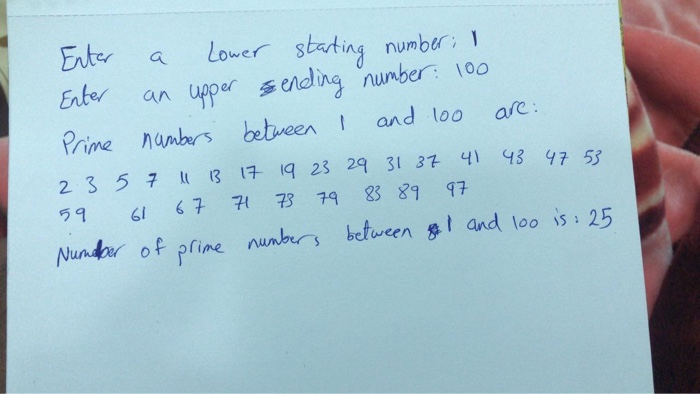 Enter a Lower starting number: 1
Enter an upper ending number: 100
Prime numbers between 1 and 100 are:
2 3 5 7 11 13 17 19 23 29 31 37 41 43 47 53
59 61 67 71 73 79 83 89 97
Number of prime numbers between 1 and 100 is: 25